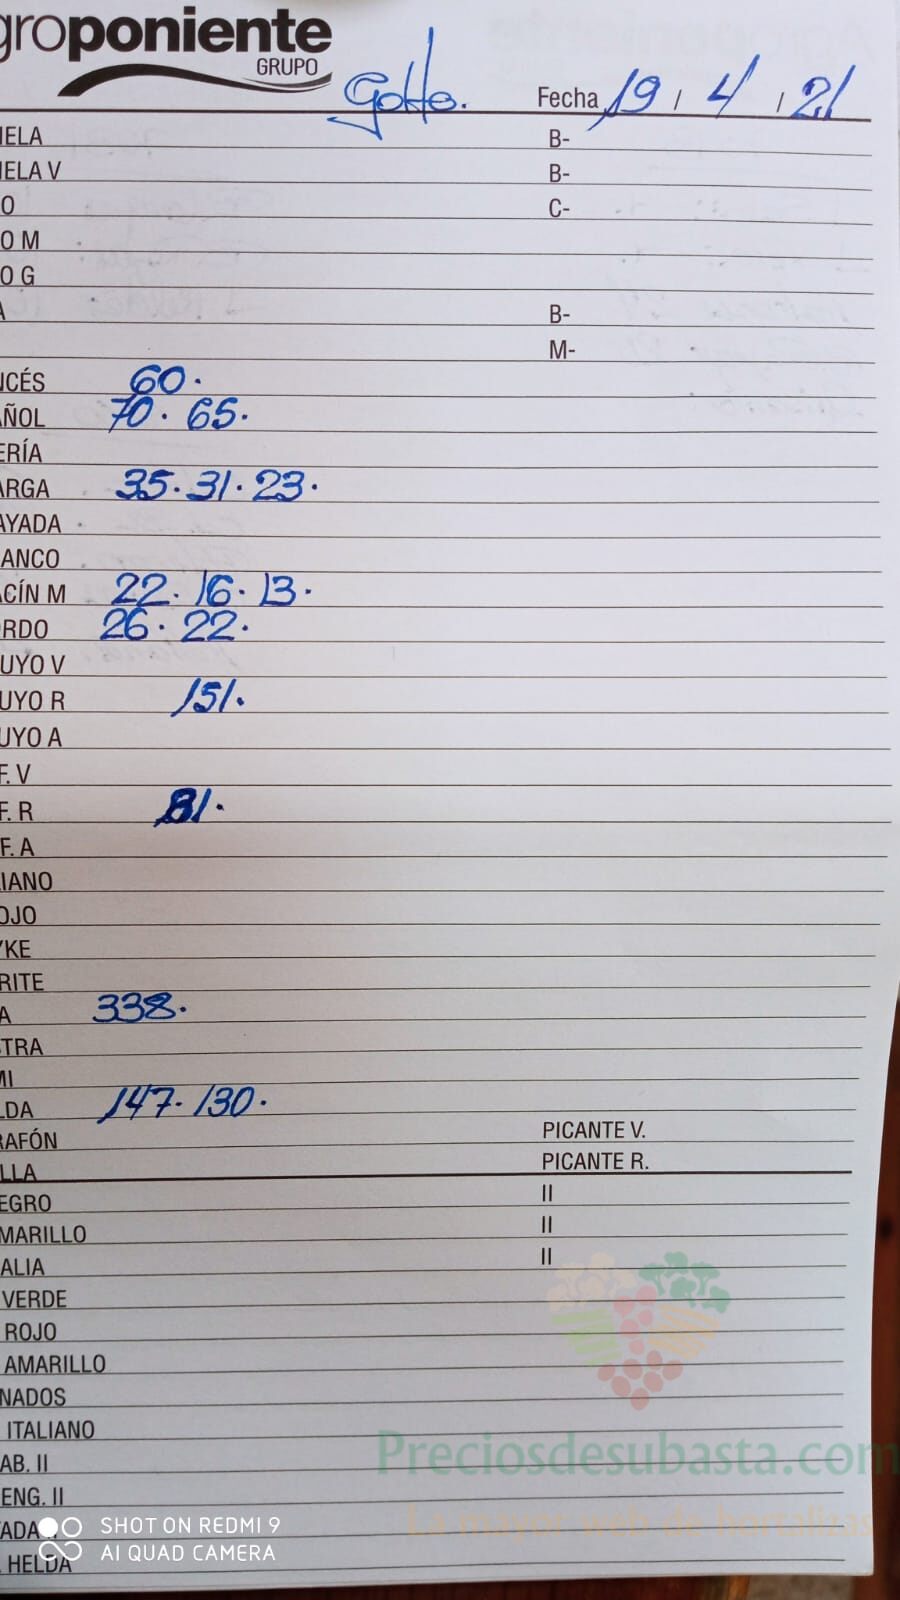 groponiente
GRUPO
Golfo. Fecha 19 / 4 / 21
IELA B-
IELA V B-
O C-
O M
O G
A B-
M-
NCÉS 60.
AÑOL 70. 65.
ERÍA
ARGA 35. 31. 23.
AYADA
ANCO
ACÍN M 22. 16. 13.
ORDO 26. 22.
UYO V
UYO R 151.
UYO A
F. V
F. R 81.
F. A
LIANO
OJO
YKE
RITE
A 338.
STRA
MI
LDA 147. 130.
RAFÓN PICANTE V.
LLA PICANTE R.
EGRO II
MARILLO II
ALIA II
VERDE
ROJO
AMARILLO
NADOS
ITALIANO
Preciosdesubasta.com
AB. II
ENG. II
La mayor web de hortalizas
ADA II
SHOT ON REDMI 9
AI QUAD CAMERA
. HELDA